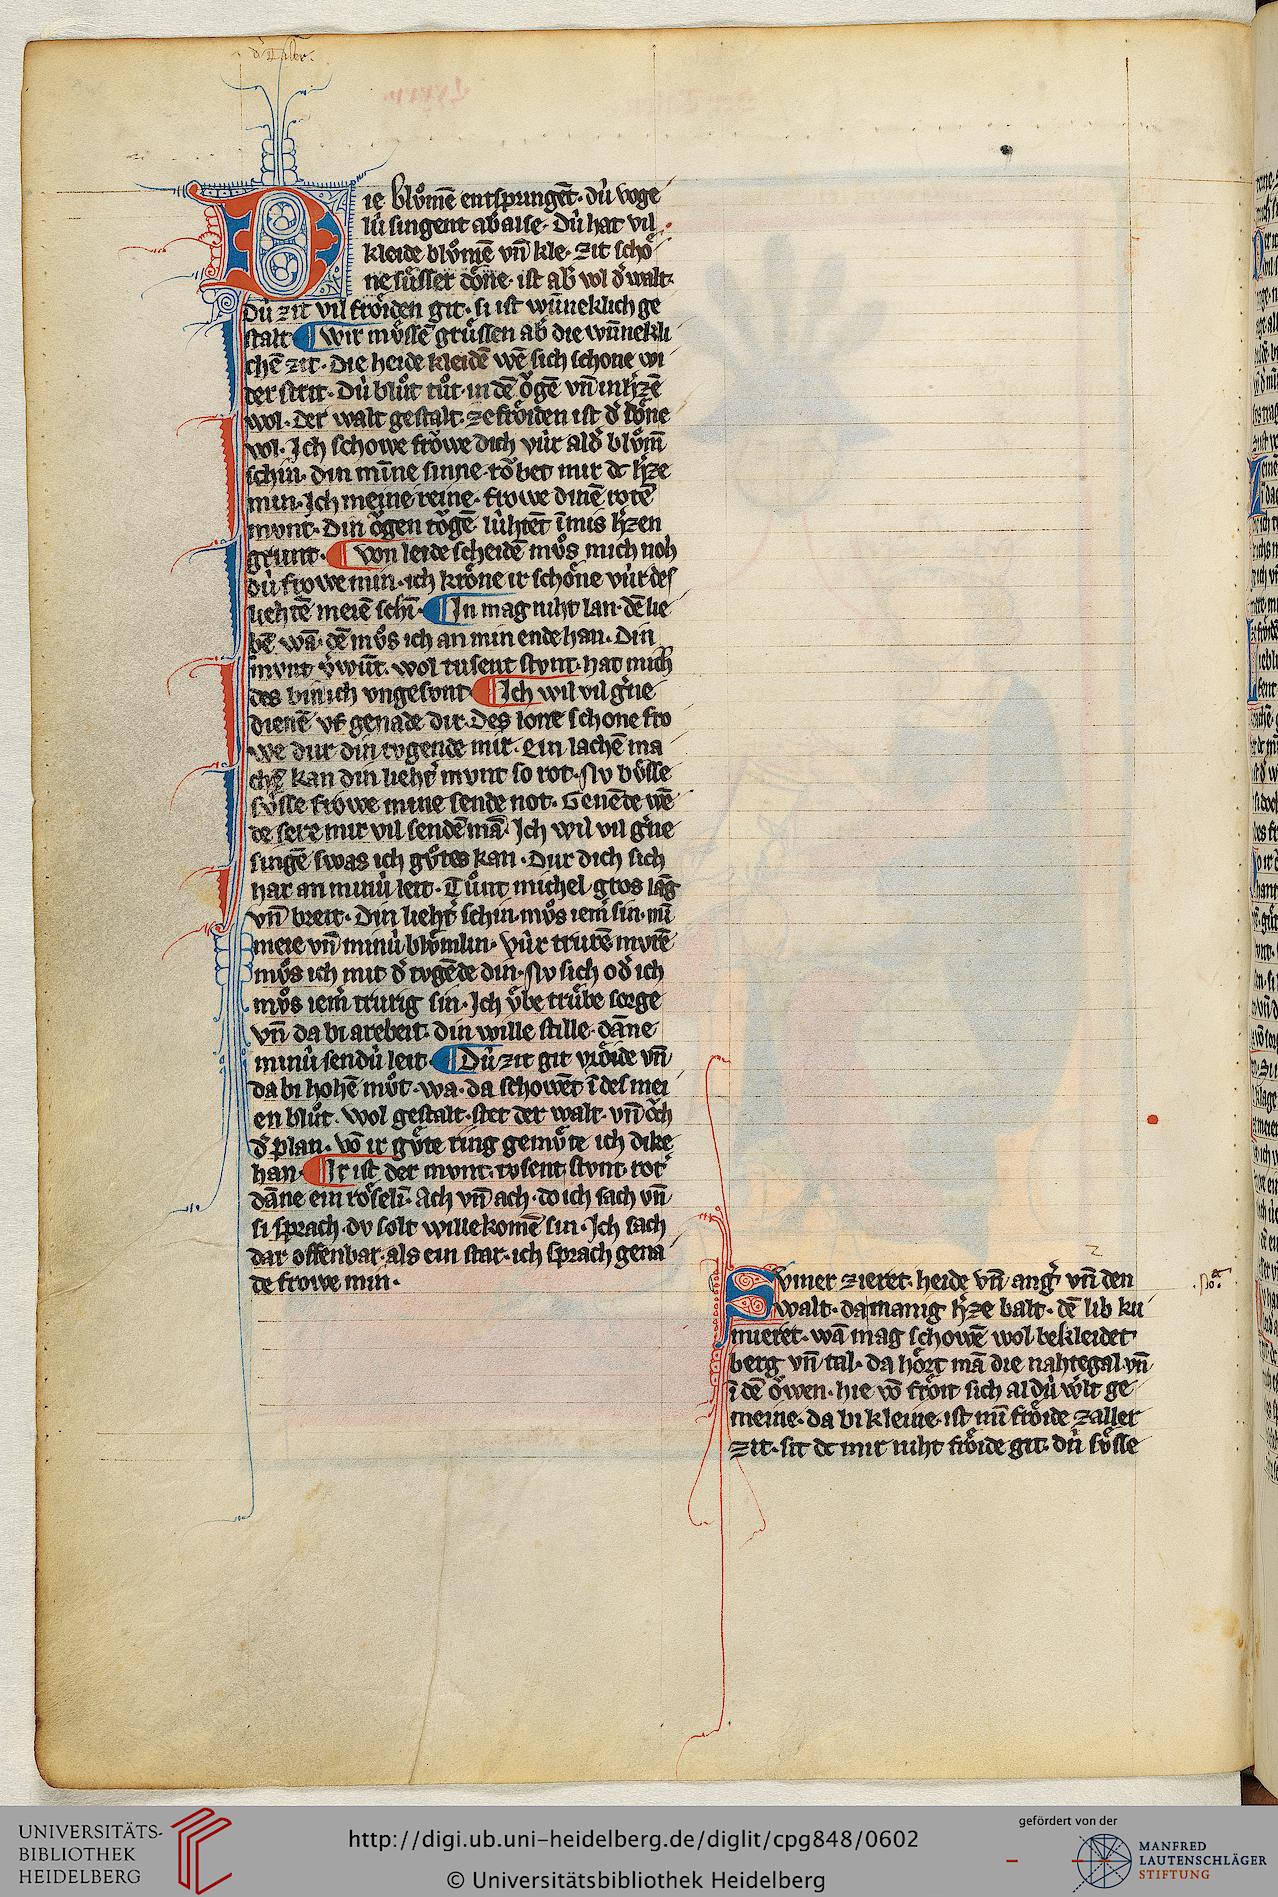 d' Taler.
Die blůmē entspringēt· dú voge
lú singent ab alse· Dú hat vil
kleide blůmē vn̄ kle· zit schö
ne süsser döne· ist ab wol d' walt·
Dú zit vil fröiden git· si ist wūneklich ge
stalt· Wir müssē grüssen ab die wūnekli
chē zit· Die heide kleidē wē sich schone wi
der strit· Dú blůt tůt· in dē ǒgē vn̄ in h'zē
wol· Der walt gestalt· ze fröiden ist d' döne
vol· Ich schowe frǒwe dich vúr ald' blům̄
schin· din mīne sinne rǒbet mir dc h'ze
min· Ich meine reine· frowe dinē rotē
mvnt· Din ǒgen tǒgē lúhtēt ī mis h'zen
grunt· Von leide scheidē můs mich noh
dú frowe min· ich kröne ir schöne vúr des
liehtē meiē schī· In mag niht lan· dē lie
bē wā· dē můs ich an min ende han· Din
mvnt v'wūt· wol tusent stvnt· hat mich
des bin ich vngesvnt· Ich wil vil g'ne
dienē vf genade dir· Des lone schone fro
we dur din tvgende mir· ein lachē ma
chē kan din lieht' mvnt so rot· Nv bůsse
sůsse frowe mine sende not· Genēde wē
de sere mir vil sendē mā· Ich wil vil g'ne
singē swas ich gůtes kan· Dur dich sich
har an minú leit· Tůnt michel gros lāg
vn̄ breit· Din lieht' schin· můs iem' sin· mī
meie vn̄ minú blůmlin· vúr trurē mvrē
můs ich mit d' tvgēde din· Nv sich od' ich
můs iem' trurig sin· Ich ůbe trůbe sorge
vn̄ da bi arebeit· din wille stille· dāne
minú sendú leit· Dú zit git vröide vn̄
da bi hohē můt· wa· da schowēt ī des mei
en blůt· wol gestalt· stet der walt· vn̄ ǒch
d' plan· vō ir gůte ring gemůte ich dike
han· Ir ist der mvnt· tvsent stvnt· rot'
dāne ein röselī· Ach vn̄ ach· do ich sach vn̄
si sprach· dv solt willekomē sin· Ich sach
dar offenbar· als ein star· ich sprach gena
de frowe min·
Svmer zieret· heide vn̄ ang' vn̄ den
walt· da manig h'ze balt· dē lib ku
mieret· wā mag schowē wol bekleidet
berg vn̄ tal· da hört mā die nahtegal· vn̄
ī dē ǒwen· hie vō fröit sich al dú w'lt ge
meine· da bi kleine· ist mī fröide zaller
zit· sit dc mir niht fröide git· dú sůsse
UNIVERSITÄTS-
BIBLIOTHEK
HEIDELBERG
http://digi.ub.uni-heidelberg.de/diglit/cpg848/0602
© Universitätsbibliothek Heidelberg
gefördert von der
MANFRED
LAUTENSCHLÄGER
STIFTUNG